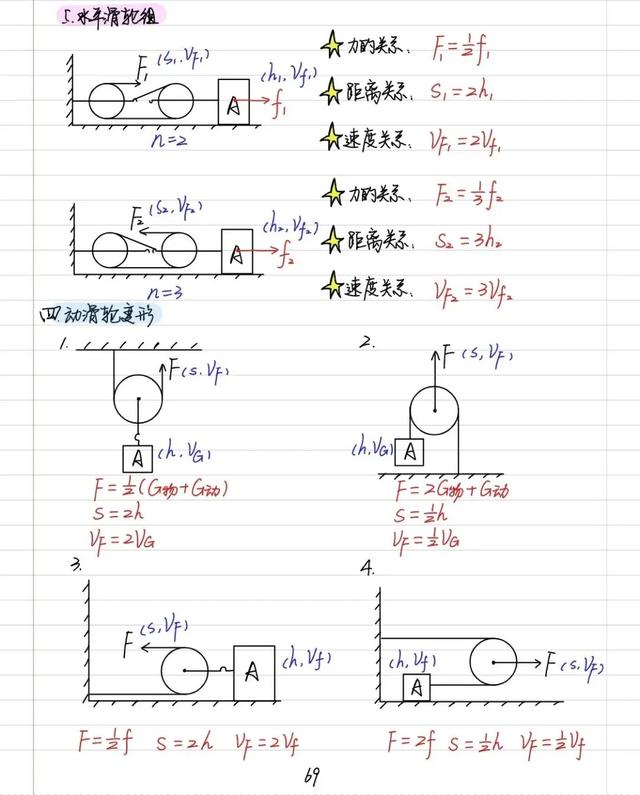 5.水平滑轮组
F₁ (S₁,V_F₁)
(h₁,V_f₁)
A
f₁
n=2
力的关系: F₁=½f₁
距离关系: S₁=2h₁
速度关系: V_F₁=2V_f₁
F₂ (S₂,V_F₂)
(h₂,V_f₂)
A
f₂
n=3
力的关系: F₂=⅓f₂
距离关系: S₂=3h₂
速度关系: V_F₂=3V_f₂
四.动滑轮变形
1.
F(s,V_F)
A
(h,V_G)
F=½(G物+G动)
S=2h
V_F=2V_G
2.
F(s,V_F)
(h,V_G)
A
F=2G物+G动
S=½h
V_F=½V_G
3.
F (s,V_F)
A
(h,V_f)
F=½f S=2h V_F=2V_f
4.
(h,V_f)
A
F(s,V_F)
F=2f S=½h V_F=½V_f
69